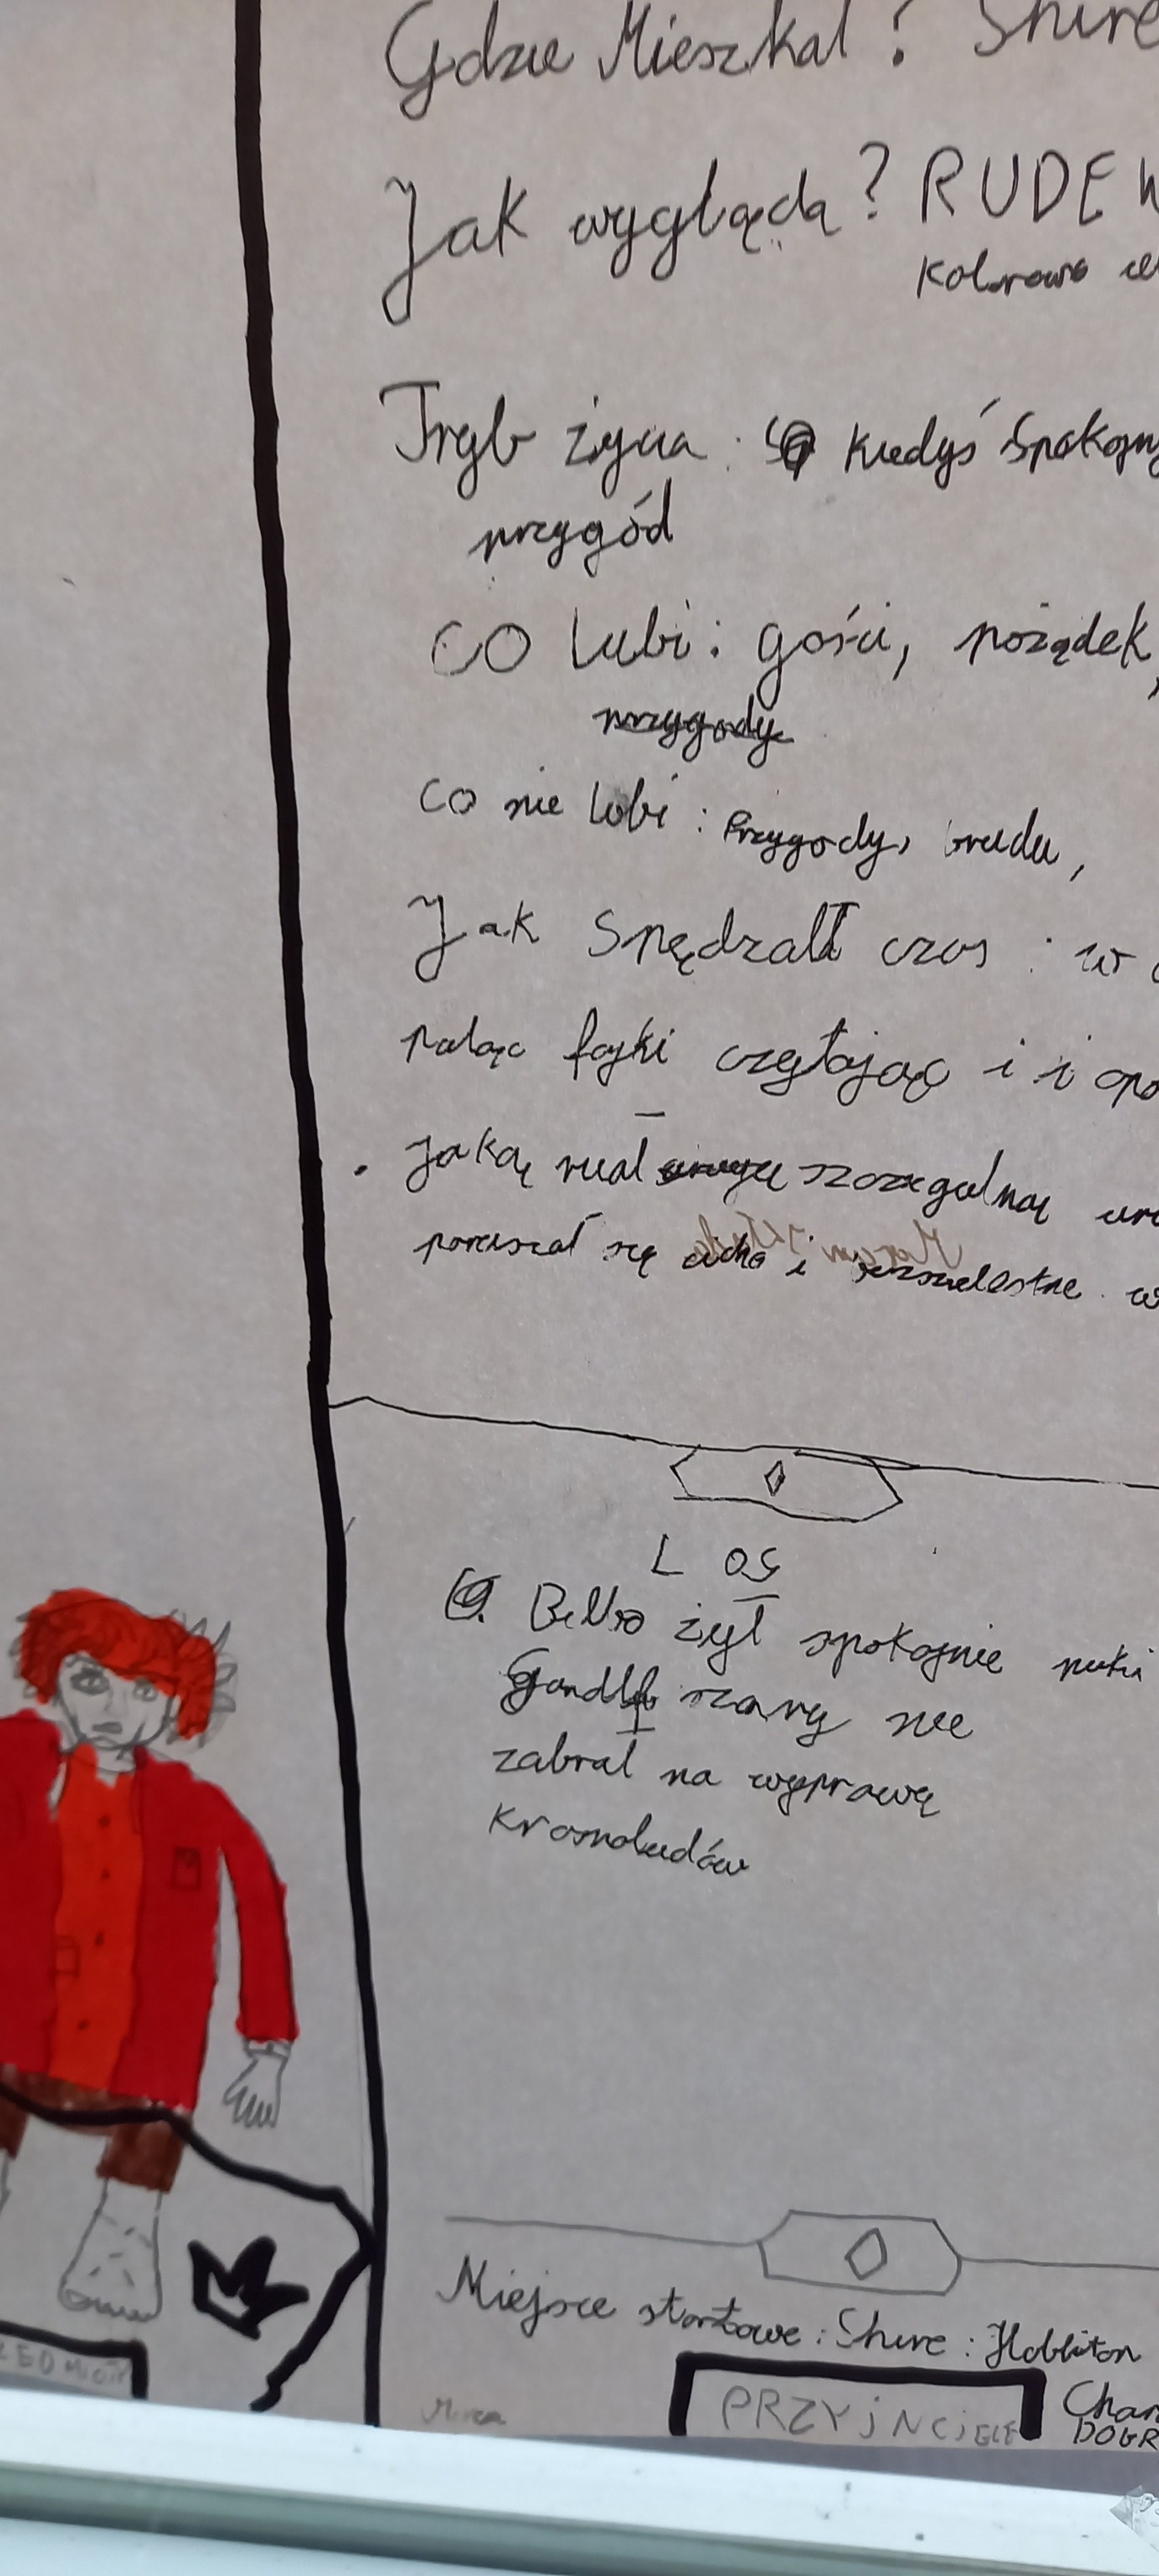 Gdzie Mieszkał? Shire
Jak wygląda? RUDE
Kolorowe
Tryb życia: Kiedyś Spokojny
przygód
CO Lubi: gości, pożądek,
przygody
Co nie lubi: Przygody, brudu,
Jak Spędzał czas: w
paląc fajki czytając i i opo
Jaką miał szczegulną
poruszał się cicho i bezszelestne w
LOS
Bilbo żył spokojnie puki
Gandlf szary nie
zabrał na wyprawę
Krasnoludów
Miejsce startowe: Shire: Hobbiton
PRZYJACIELE
DOBR